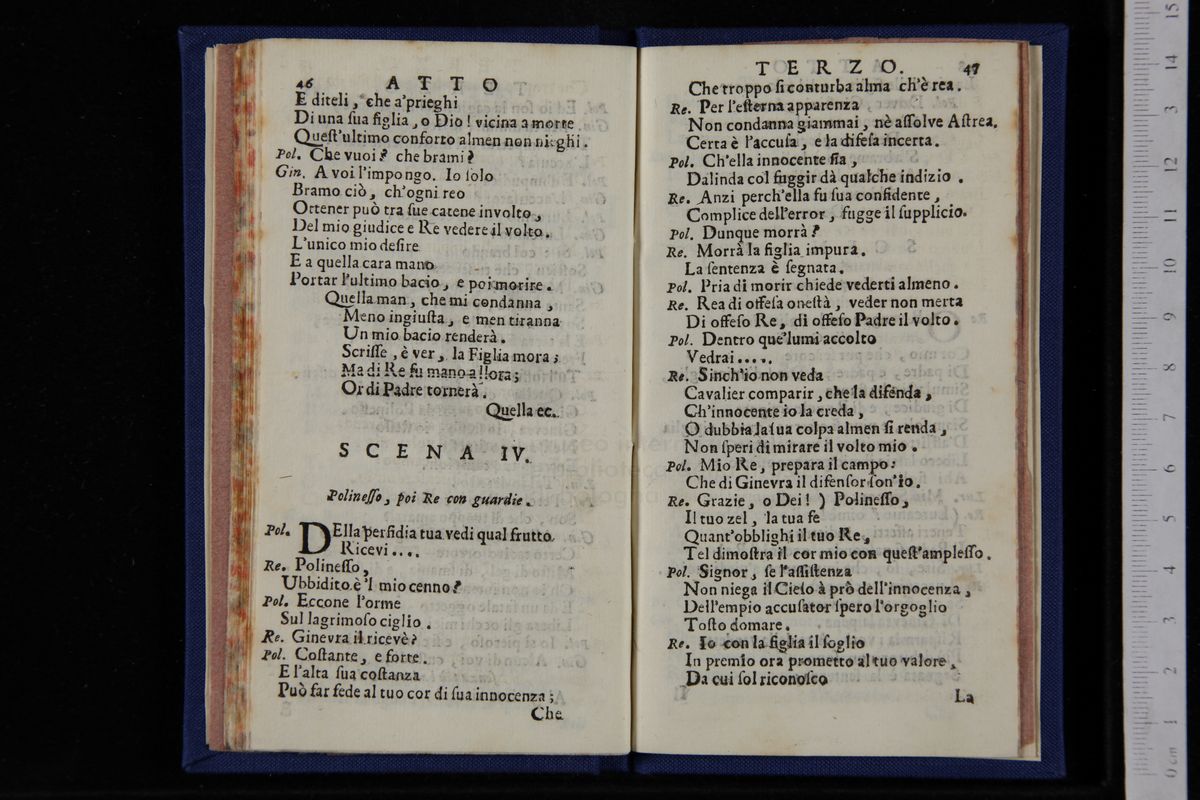 46 ATTO
E diteli, che a'prieghi
Di una sua figlia, o Dio! vicina a morte
Quest'ultimo conforto almen non nieghi.
Pol. Che vuoi? che brami?
Gin. A voi l'impongo. Io solo
Bramo ciò, ch'ogni reo
Ottener può tra sue catene involto,
Del mio giudice e Re vedere il volto.
L'unico mio desire
E a quella cara mano
Portar l'ultimo bacio, e poi morire.
Quella man, che mi condanna,
Meno ingiusta, e men tiranna
Un mio bacio renderà.
Scrisse, è ver, la Figlia mora;
Ma di Re fu mano allora;
Or di Padre tornerà.
Quella ec.
SCENA IV.
Polinesso, poi Re con guardie.
Pol. DElla perfidia tua vedi qual frutto
Ricevi....
Re. Polinesso,
Ubbidito è 'l mio cenno?
Pol. Eccone l'orme
Sul lagrimoso ciglio.
Re. Ginevra il ricevè?
Pol. Costante, e forte.
E l'alta sua costanza
Può far fede al tuo cor di sua innocenza;
Che
TERZO. 47
Che troppo si conturba alma ch'è rea.
Re. Per l'esterna apparenza
Non condanna giammai, nè assolve Astrea.
Certa è l'accusa, e la difesa incerta.
Pol. Ch'ella innocente sia,
Dalinda col fuggir dà qualche indizio.
Re. Anzi perch'ella fu sua confidente,
Complice dell'error, fugge il supplicio.
Pol. Dunque morrà?
Re. Morrà la figlia impura.
La sentenza è segnata.
Pol. Pria di morir chiede vederti almeno.
Re. Rea di offesa onestà, veder non merta
Di offeso Re, di offeso Padre il volto.
Pol. Dentro que'lumi accolto
Vedrai.....
Re. Sinch'io non veda
Cavalier comparir, che la difenda,
Ch'innocente io la creda,
O dubbia la sua colpa almen si renda,
Non speri di mirare il volto mio.
Pol. Mio Re, prepara il campo:
Che di Ginevra il difensor son'io.
Re. Grazie, o Dei!) Polinesso,
Il tuo zel, la tua fe
Quant'obblighi il tuo Re,
Tel dimostra il cor mio con quest'amplesso.
Pol. Signor, se l'assistenza
Non niega il Cielo à prò dell'innocenza,
Dell'empio accusator spero l'orgoglio
Tosto domare.
Re. Io con la figlia il soglio
In premio ora prometto al tuo valore,
Da cui sol riconosco
La
0 cm 1 2 3 4 5 6 7 8 9 10 11 12 13 14 15